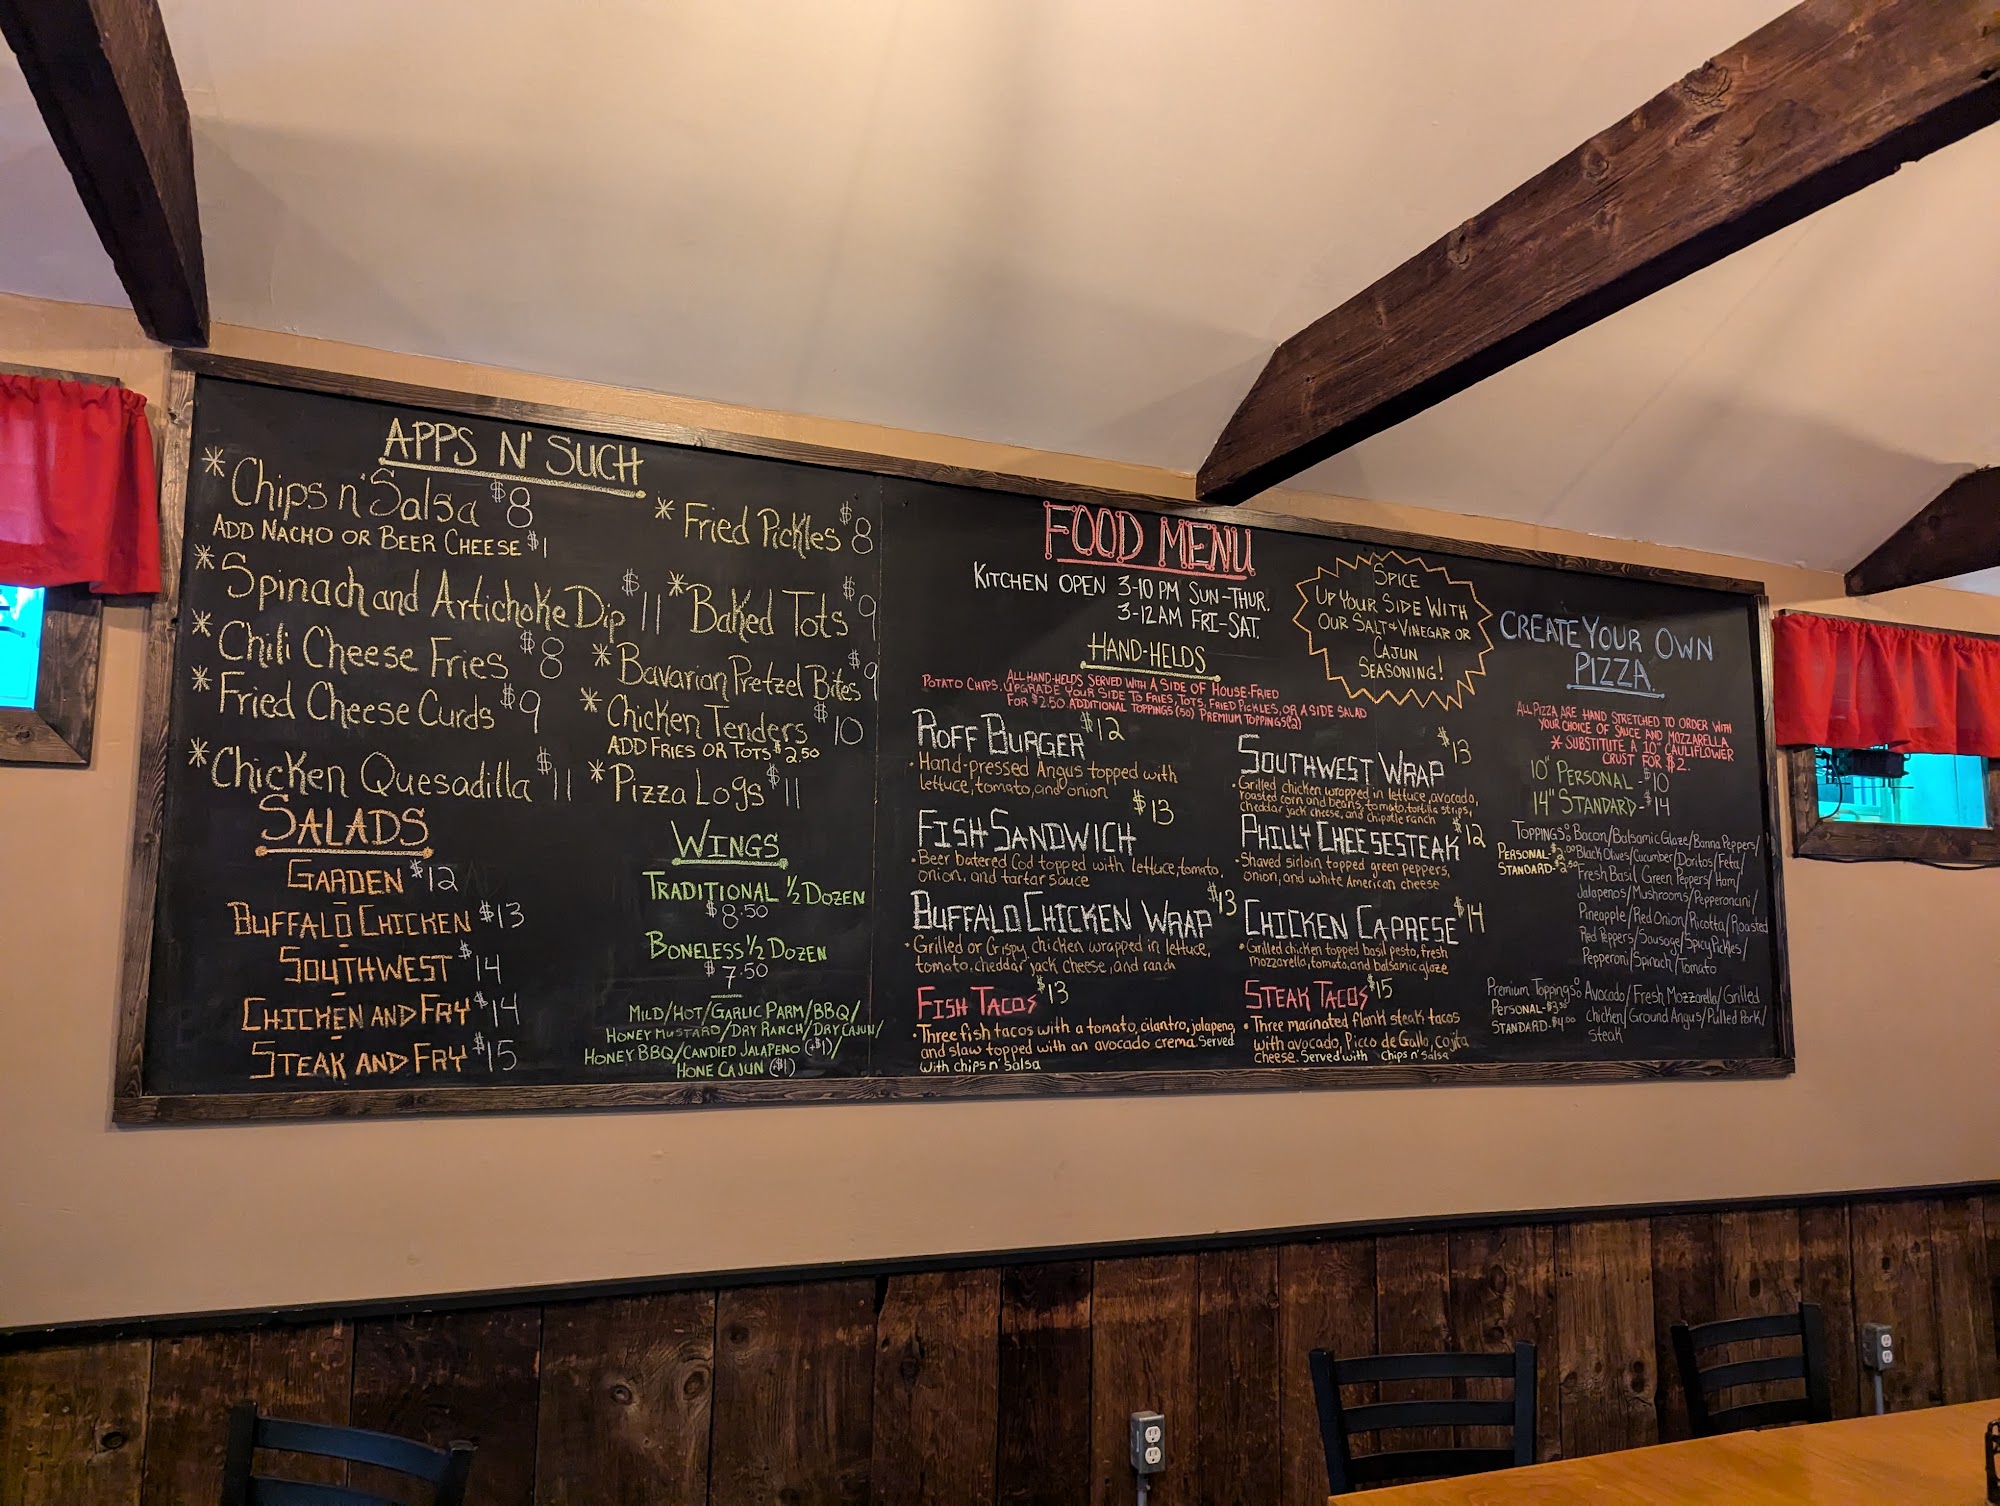 APPS N' SUCH
* Chips n' Salsa $8
ADD NACHO OR BEER CHEESE $1
* Spinach and Artichoke Dip $11
* Chili Cheese Fries $8
* Fried Cheese Curds $9
* Chicken Quesadilla $11
* Fried Pickles $8
* Baked Tots $9
* Bavarian Pretzel Bites $9
* Chicken Tenders $10
ADD FRIES OR TOTS $2.50
* Pizza Logs $11
SALADS
GARDEN $12
BUFFALO CHICKEN $13
SOUTHWEST $14
CHICKEN AND FRY $14
STEAK AND FRY $15
WINGS
TRADITIONAL 1/2 DOZEN
$8.50
BONELESS 1/2 DOZEN
$7.50
MILD/HOT/GARLIC PARM/BBQ/
HONEY MUSTARD/DRY RANCH/DRY CAJUN/
HONEY BBQ/CANDIED JALAPENO (+$1)/
HONE CAJUN (+$1)
FOOD MENU
KITCHEN OPEN 3-10 PM SUN-THUR.
3-12AM FRI-SAT.
HAND-HELDS
ALL HAND-HELDS SERVED WITH A SIDE OF HOUSE-FRIED
POTATO CHIPS. UPGRADE YOUR SIDE TO FRIES, TOTS, FRIED PICKLES, OR A SIDE SALAD
FOR $2.50. ADDITIONAL TOPPINGS (50) PREMIUM TOPPINGS (2)
ROFF BURGER $12
• Hand-pressed Angus topped with
lettuce, tomato, and onion
FISH SANDWICH $13
• Beer batered Cod topped with lettuce, tomato,
onion, and tartar sauce
BUFFALO CHICKEN WRAP $13
• Grilled or Crispy chicken wrapped in lettuce,
tomato, cheddar jack cheese, and ranch
FISH TACOS $13
• Three fish tacos with a tomato, cilantro, jalapeno,
and slaw topped with an avocado crema. Served
with chips n' Salsa
SOUTHWEST WRAP $13
• Grilled chicken wrapped in lettuce, avocado,
roasted corn and beans, tomato, tortilla strips,
cheddar jack cheese, and chipotle ranch
PHILLY CHEESESTEAK $12
• Shaved sirloin topped green peppers,
onion, and white American cheese
CHICKEN CAPRESE $14
• Grilled chicken topped basil pesto, fresh
mozzarella, tomato, and balsamic glaze
STEAK TACOS $15
• Three marinated flank steak tacos
with avocado, Picco de Gallo, cojita
Cheese. Served with Chips n' Salsa
SPICE
UP YOUR SIDE WITH
OUR SALT & VINEGAR OR
CAJUN
SEASONING!
CREATE YOUR OWN
PIZZA.
ALL PIZZA ARE HAND STRETCHED TO ORDER WITH
YOUR CHOICE OF SAUCE AND MOZZARELLA.
* SUBSTITUTE A 10" CAULIFLOWER
CRUST FOR $2.
10" PERSONAL - $10
14" STANDARD - $14
TOPPINGS: Bacon/Balsamic Glaze/Banna Peppers/
PERSONAL-$2.00 Black Olives/Cucumber/Doritos/Feta/
STANDARD-$2.50 Fresh Basil/Green Peppers/Ham/
Jalapenos/Mushrooms/Pepperoncini/
Pineapple/Red Onion/Ricotta/Roasted
Red Peppers/Sausage/Spicy Pickles/
Pepperoni/Spinach/Tomato
Premium Toppings: Avocado/Fresh Mozzarella/Grilled
PERSONAL-$3.50 Chicken/Ground Angus/Pulled Pork/
STANDARD-$4.00 Steak